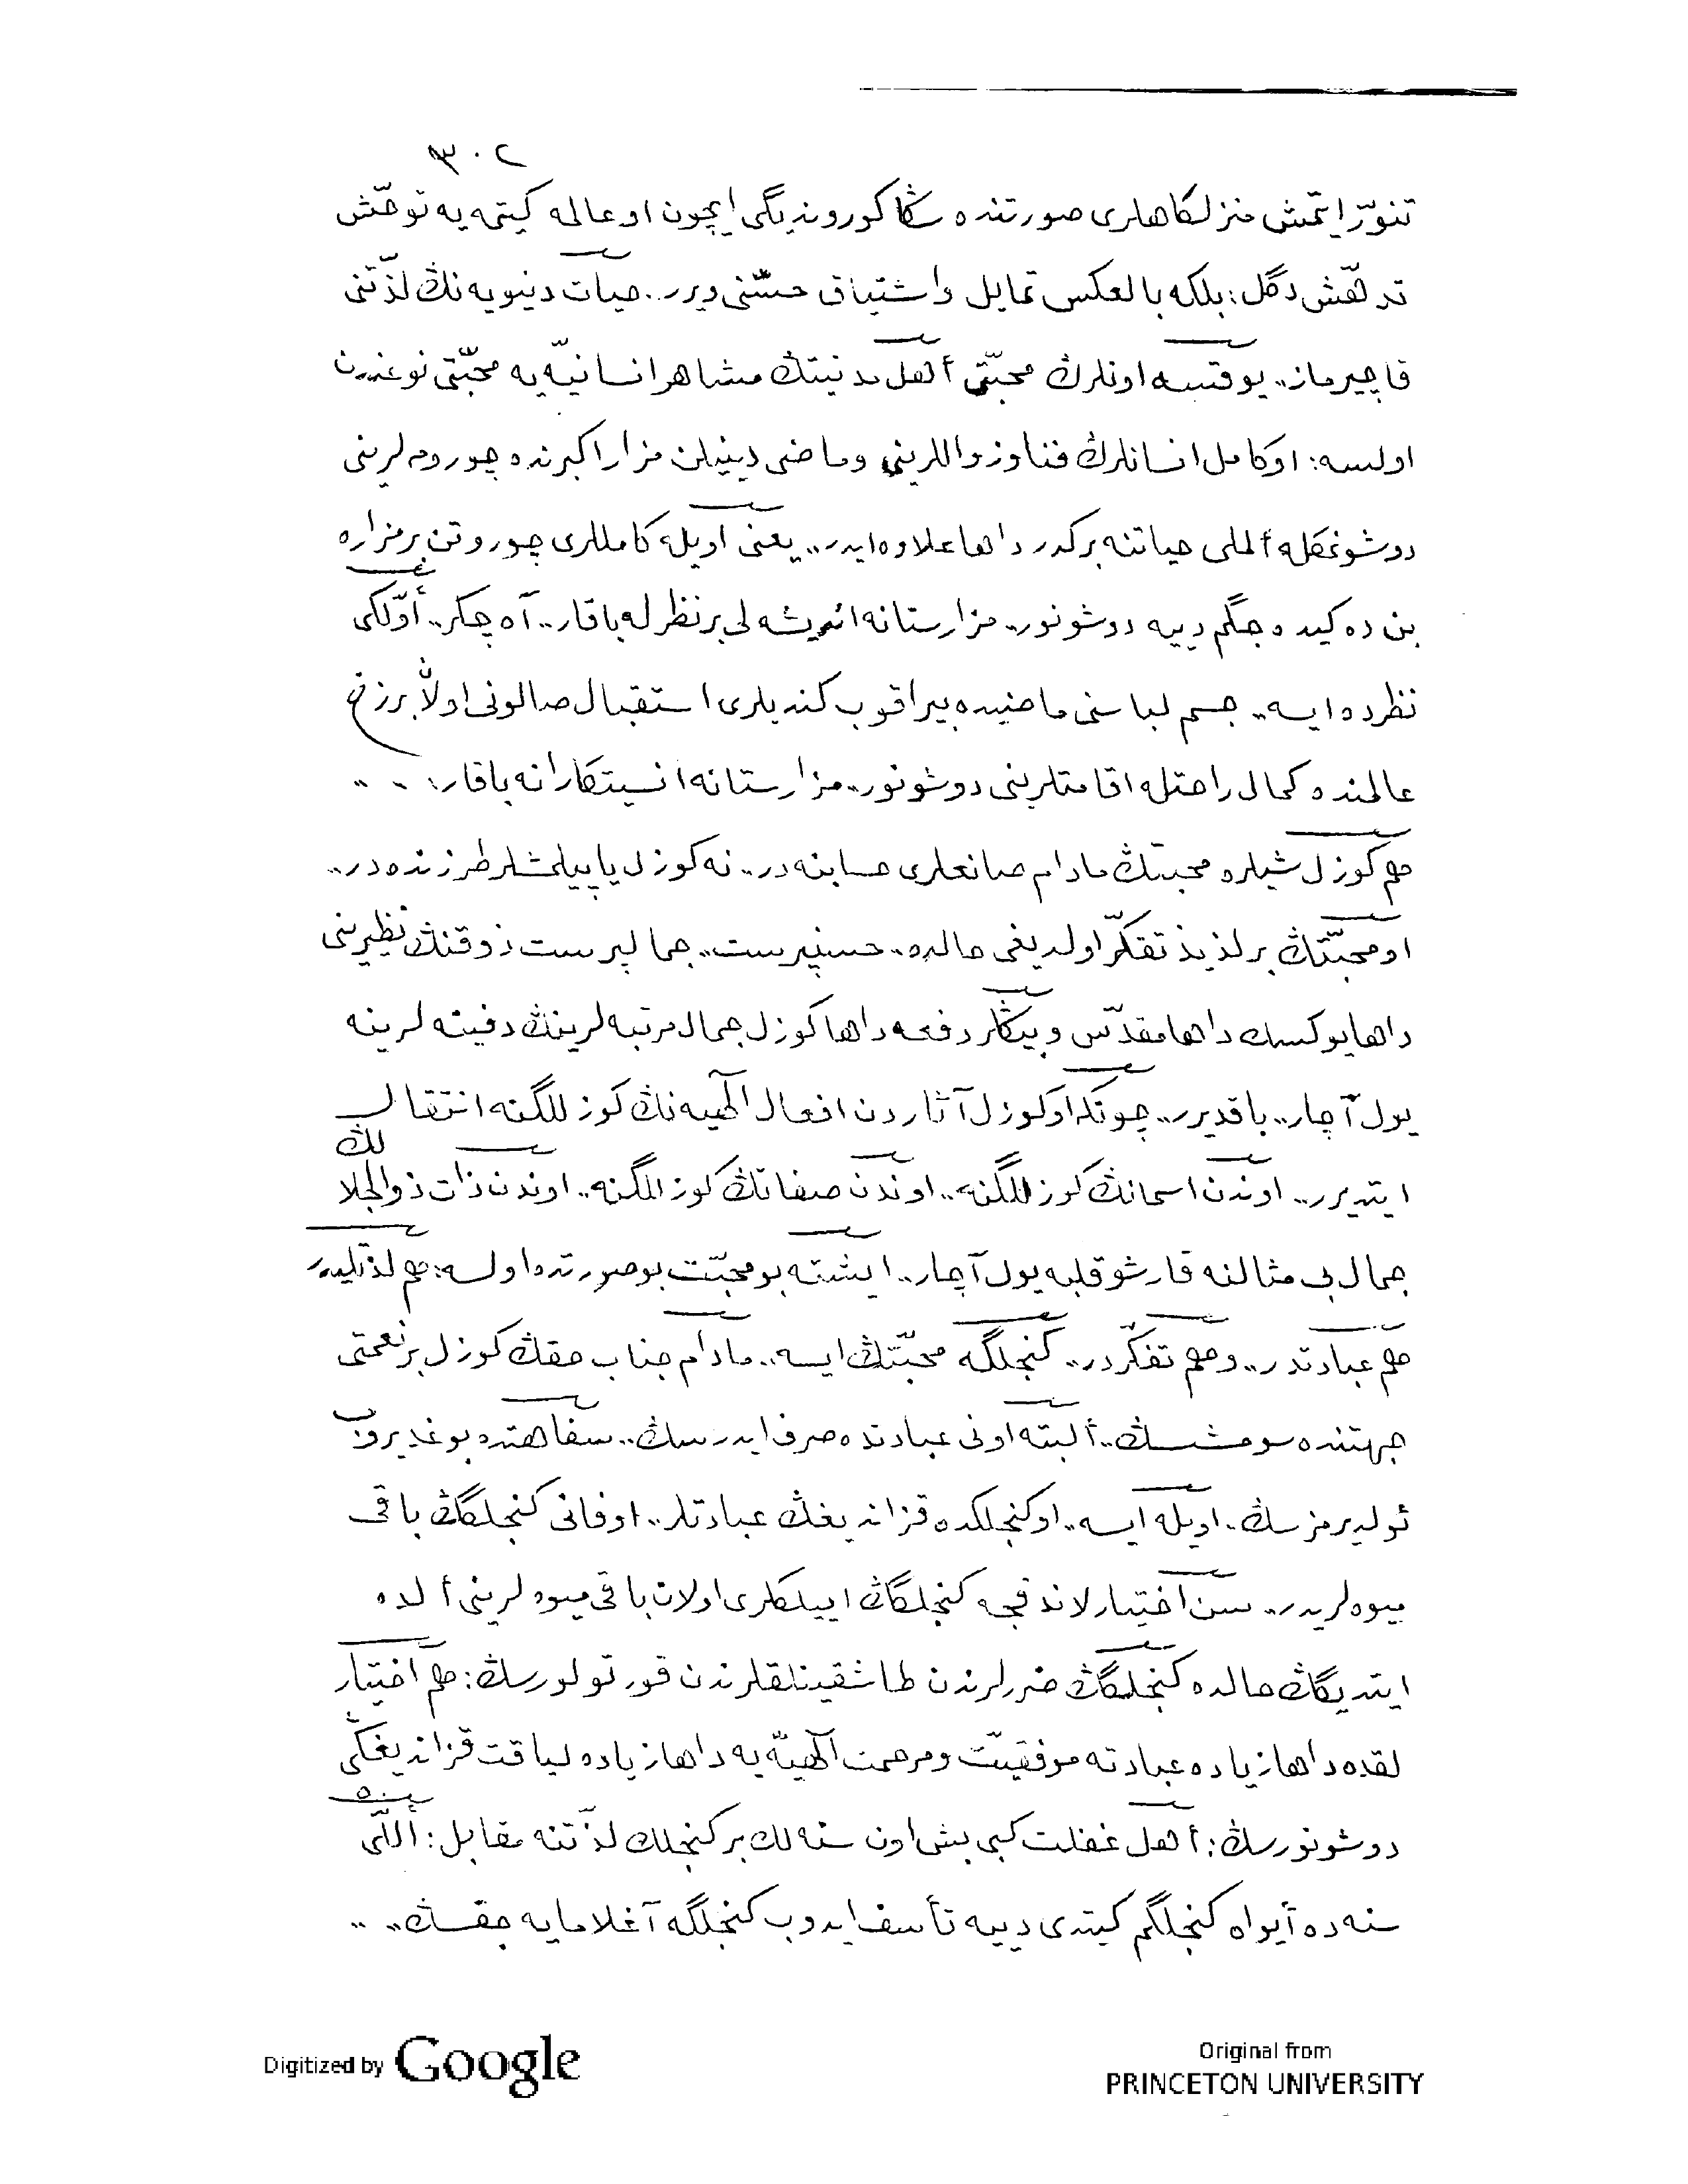 ٣٠٢
تنوّر ایتمش منزلكاهلری صورتنده سڭا كوروندیگی ایچون او عالمه كیتمه یه توحّش
تدهّش دگل؛ بلكه بالعكس تمایل و اشتیاق حسّنی ویرر.. حیات دنیویه نڭ لذّتنی
قاچیرماز.. یوقسه اونلرڭ محبّتی أهل مدنیتڭ مشاهر انسانیّه یه محبّتی نوعندن
اولسه: او كامل انسانلرڭ فنا و زواللرینی و ماضی دینیلن مزار اكبرنده چورومه لرینی
دوشونمكله ألملی حیاتنه بر كدر داها علاوه ایدر.. یعنی اویله كامللری چوروتن بر مزاره
بن ده كیده جگم دییه دوشونور.. مزارستانه اندیشه لی بر نظرله باقار.. آه چكر.. أوّلكی
نظرده ایسه.. جسم لباسنی ماضیده بیراقوب كندیلری استقبال صالونی اولان برزخ
عالمنده كمال راحتله اقامتلرینی دوشونور.. مزارستانه انسیتكارانه باقار: . ..
هم كوزل شیلره محبتڭ مادام صانعلری حسابنه در.. نه كوزل یاپیلمشلر طرزنده در..
او محبّتڭ بر لذیذ تفكّر اولدیغی حالده.. حسنپرست.. جمالپرست ذوقنڭ نظیرینی
داها یوكسك داها مقدّس و بیڭلر دفعه داها كوزل جمال مرتبه لرینڭ دفینه لرینه
یول آچار.. باقدیرر.. چونكه او كوزل آثاردن افعال الٓهیه نڭ كوزللگنه انتقال
ایتدیرر.. اوندن اسمانڭ كوزللگنه.. اوندن صفاتڭ كوزللگنه.. اوندن ذات ذوالجلالڭ
جمال بی مثالنه قارشو قلبه یول آچار.. ایشته بو محبّت بو صورتده اولسه: هم لذّتلیدر
هم عبادتدر.. و هم تفكّردر.. كنجلگه محبّتڭ ایسه.. مادام جناب حقڭ كوزل بر نعمتی
جهتنده سومشسڭ.. ألبته اونی عبادتده صرف ایدرسڭ.. سفاهتده بوغدیروب
ئولدیرمزسڭ.. اویله ایسه.. او كنجلكده قزاندیغڭ عبادتلر.. او فانی كنجلگڭ باقی
میوه لریدر.. سن اختیارلاندقجه كنجلگڭ اییلكلری اولان باقی میوه لرینی ألده
ایتدیگڭ حالده كنجلگڭ ضررلرندن طاشقینلقلرندن قورتولورسڭ: هم اختیار
لقده داها زیاده عبادته موفقیّت و مرحمت الٓهیّه یه داها زیاده لیاقت قزاندیغڭی
دوشونورسڭ: أهل غفلت كبی بش اون سنه لك بر كنجلك لذّتنه مقابل: أللّی
سنه ده أیواه كنجلگم كیتدی دییه تأسف ایدوب كنجلگه آغلامایه جقسڭ.. ..
Digitized by Google
Original from
PRINCETON UNIVERSITY